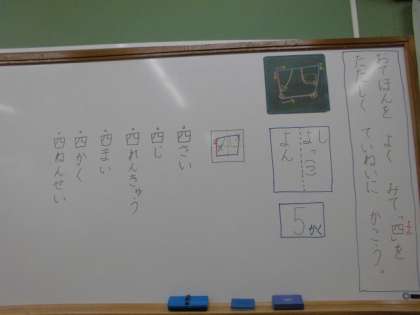 おてほんを よく みて、「四」を
ただしく ていねいに かこう。
四
し
よっ(つ)
よん
5かく
四さい
四じ
四れんきゅう
四まい
四かく
四ねんせい